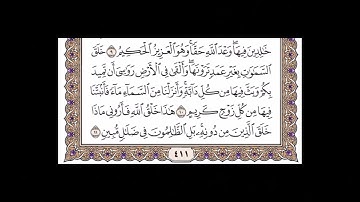 خَٰلِدِينَ فِيهَا ۖ وَعْدَ ٱللَّهِ حَقًّا ۚ وَهُوَ ٱلْعَزِيزُ ٱلْحَكِيمُ ٩ خَلَقَ
ٱلسَّمَٰوَٰتِ بِغَيْرِ عَمَدٍ تَرَوْنَهَا ۖ وَأَلْقَىٰ فِى ٱلْأَرْضِ رَوَٰسِىَ أَن تَمِيدَ
بِكُمْ وَبَثَّ فِيهَا مِن كُلِّ دَآبَّةٍ ۚ وَأَنزَلْنَا مِنَ ٱلسَّمَآءِ مَآءً فَأَنۢبَتْنَا
فِيهَا مِن كُلِّ زَوْجٍ كَرِيمٍ ١٠ هَٰذَا خَلْقُ ٱللَّهِ فَأَرُونِى مَاذَا
خَلَقَ ٱلَّذِينَ مِن دُونِهِۦ ۚ بَلِ ٱلظَّٰلِمُونَ فِى ضَلَٰلٍ مُّبِينٍ ١١
٤١١